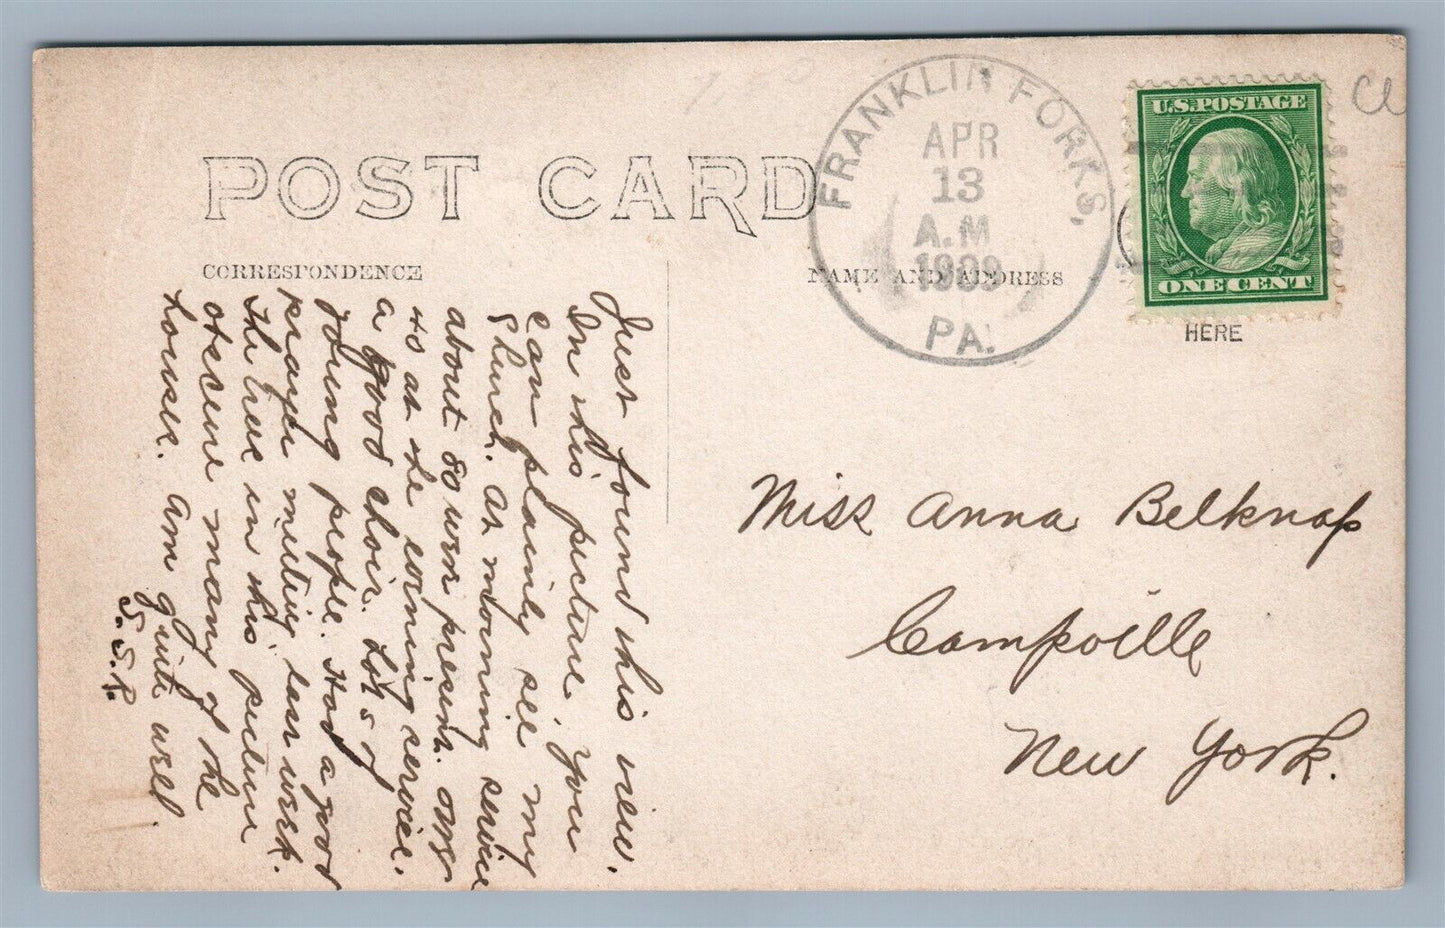 POST CARD
CORRESPONDENCE
NAME AND ADDRESS
HERE
FRANKLIN FORKS,
APR
13
A.M
1909
PA.
U.S. POSTAGE
ONE CENT
Miss Anna Belknap
Campville
New York.
Just found this view.
In this picture you
can plainly see my
church. At morning service
about 80 were present. over
40 at the evening service.
a good choir. Lots of
young people. Had a good
prayer meeting last week.
the trees in this picture
obscure many of the
houses. Am quite well.
S.S.R.